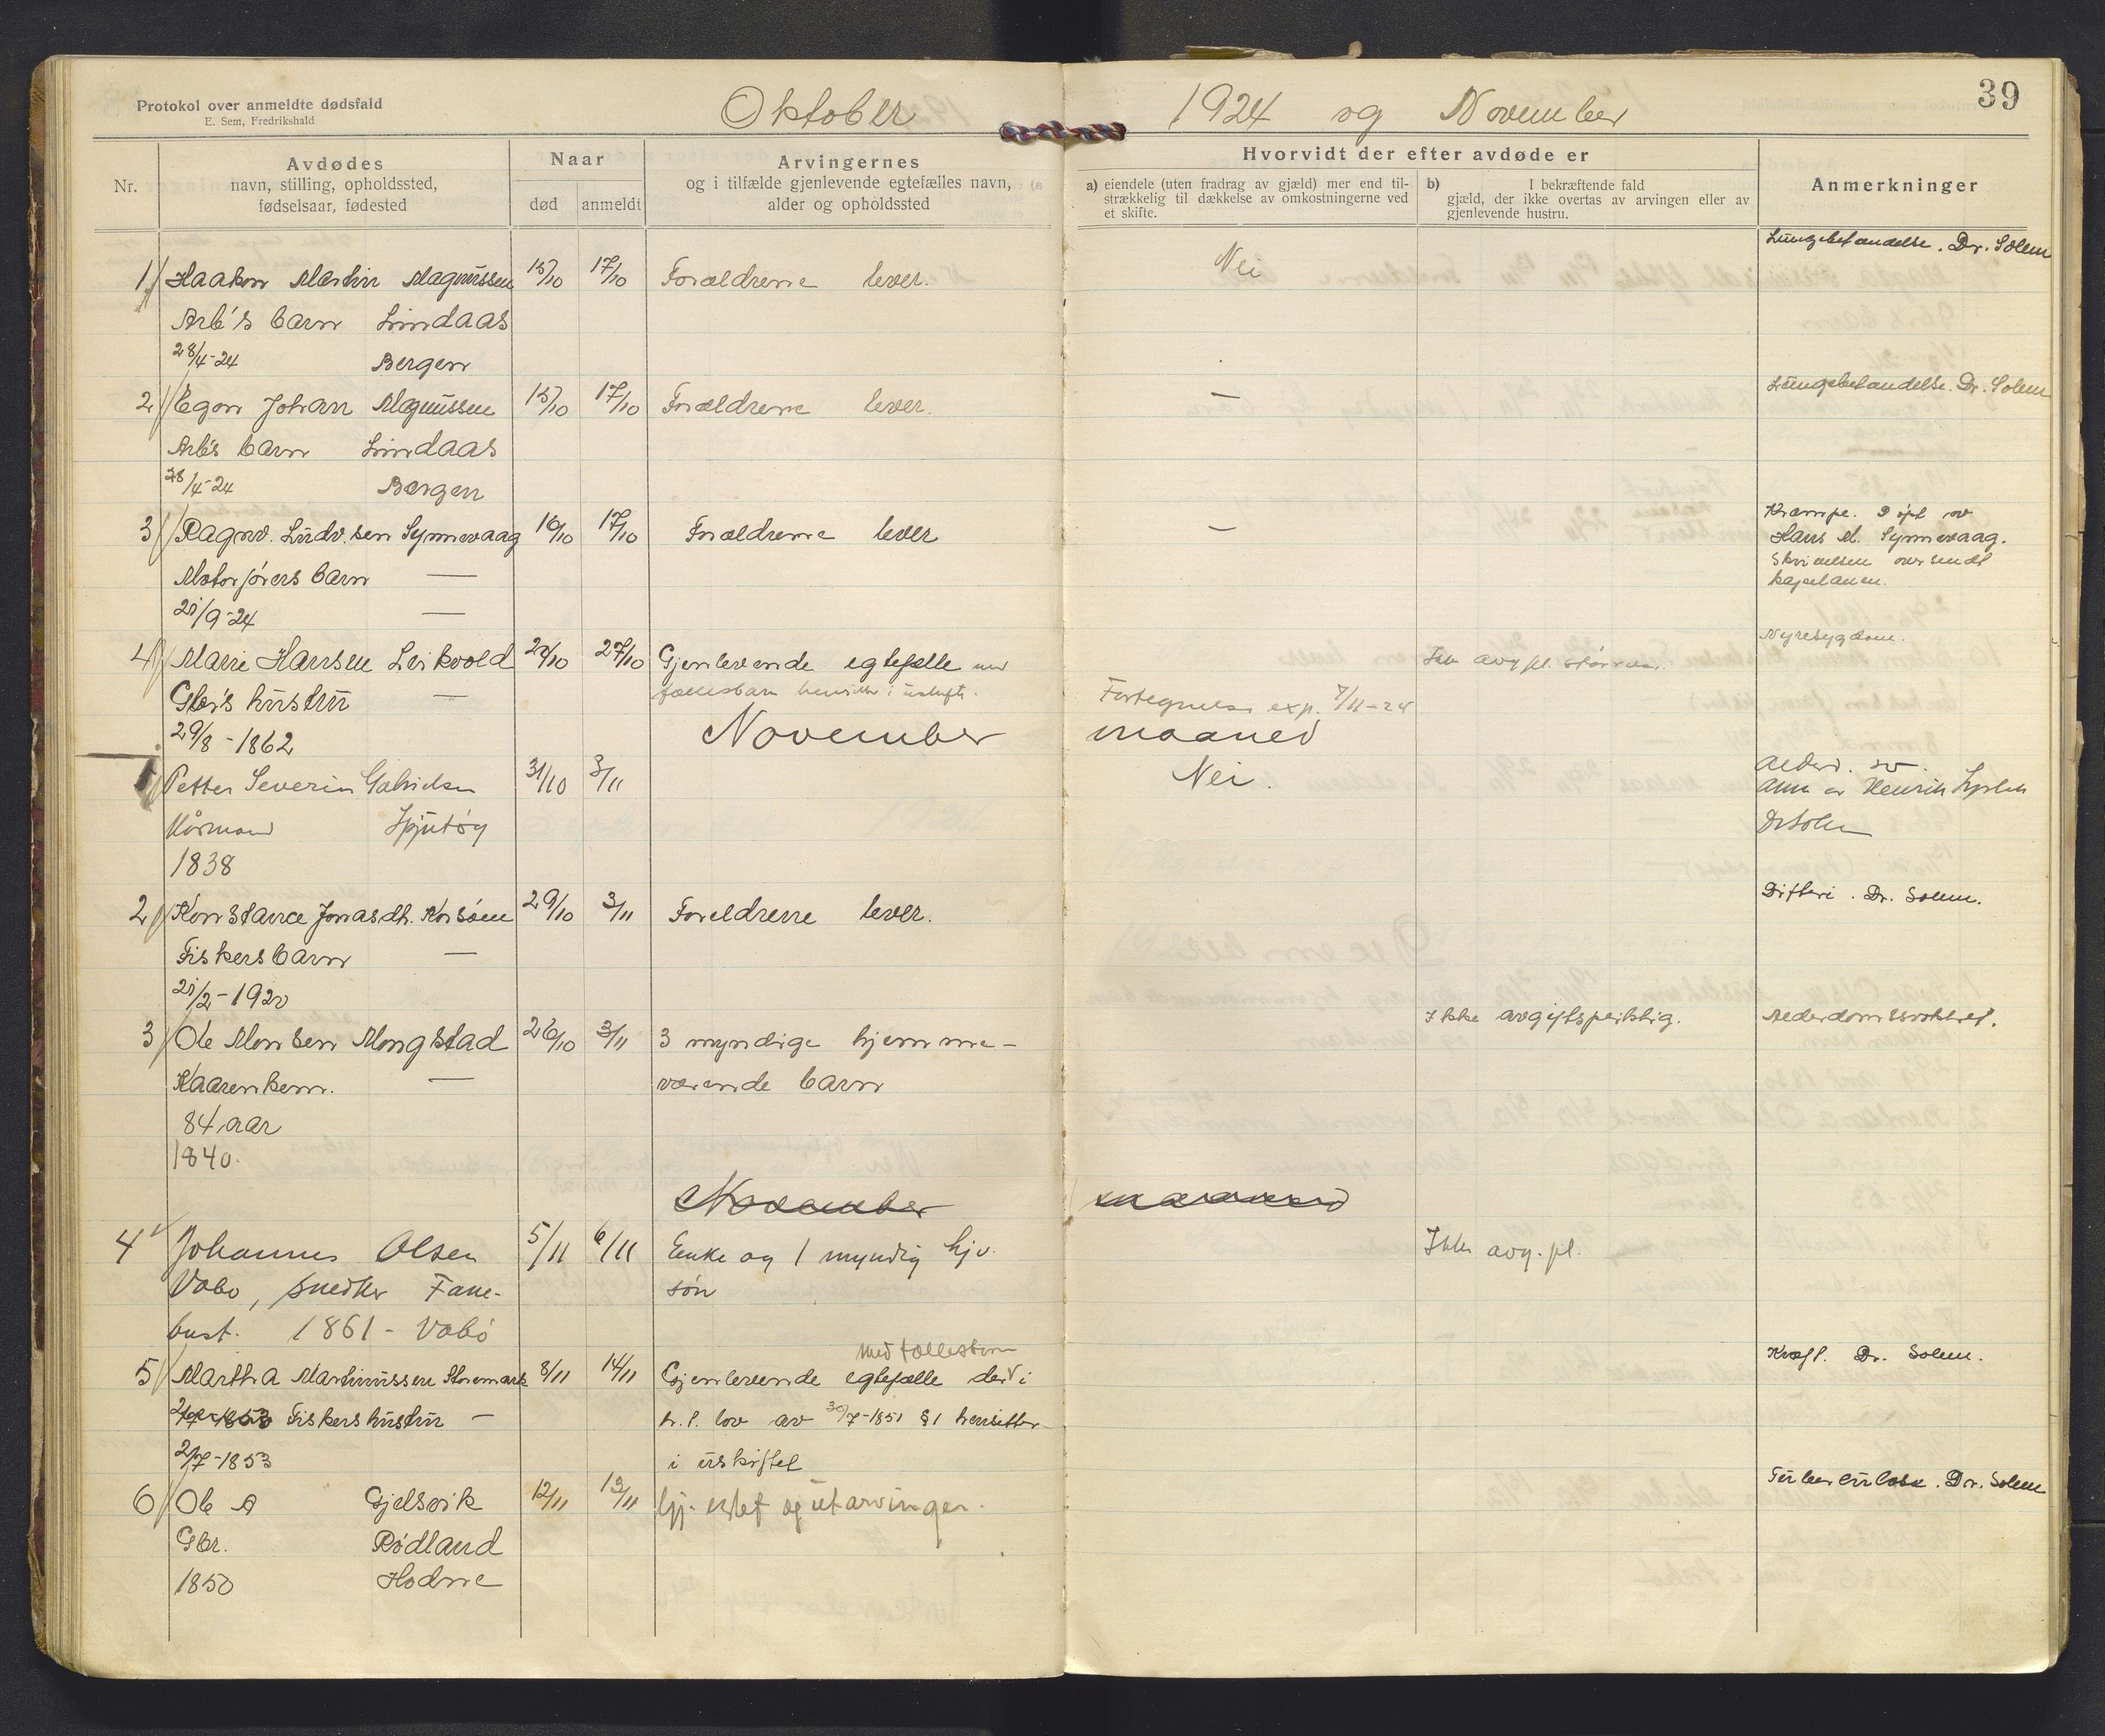 Protokol over anmeldte dødsfald
E. Sem, Fredrikshald
Oktober 1924 og November
39
Nr.
Avdødes
navn, stilling, opholdssted,
fødselsaar, fødested
Naar
død
anmeldt
Arvingernes
og i tilfælde gjenlevende egtefælles navn,
alder og opholdssted
Hvorvidt der efter avdøde er
a) eiendele (uten fradrag av gjæld) mer end til-
strækkelig til dækkelse av omkostningerne ved
et skifte.
b) I bekræftende fald
gjæld, der ikke overtas av arvingen eller av
gjenlevende hustru.
Anmerkninger
1 Haakon Martin Magnussen 15/10 17/10 Forældrene lever. Nei Lungebetændelse. Dr. Solem
Arb's barn Lindaas
28/4-24 Bergen
2 Egon Johan Magnussen 15/10 17/10 Forældrene lever. — Lungebetændelse. Dr. Solem
Arb's barn Lindaas
28/4-24 Bergen
3 Ragnv. Ludv.sen Synnevaag 16/10 17/10 Forældrene lever — Krampe. av
Hans M. Synnevaag.
Motorførers barn — Skrivelsen oversendt
kapelanen.
21/9-24 —
4 Marie Hansen Leikvold 27/10 Gjenlevende egtefælle Nyresygdom.
Gbr's hustru — fællesbarn i uskifte. Fortegnelse exp. 7/11-24
29/8-1862
November maaned
Petter Severin Gabrielsen 31/10 3/11 Nei.
Kårmand
1838
2 Konstance Jonasdtr. Korsøen 29/10 3/11 Foreldrene lever. Difteri. Dr. Solem.
Fiskers barn —
21/2-1920
3 Ole Monsen Mongstad 26/10 3/11 3 myndige hjemme- Ikke avgiftspliktig. Alderdomssvakhet.
Kaarenkem. — værende barn
84 aar
1840.
November maaned
4 Johannes Olsen 5/11 6/11 Enke og 1 myndig hjv. Ikke avg.pl.
Vabo, snedker Fane- søn
bust. 1861 - Vabø
5 Martha Martinussen Storemark 8/11 14/11 Gjenlevende egtefælle med fællesbarn der i Kræft. Dr. Solem.
Fiskers hustru — h.t. lov av 30/7-1851 §1 hensitter
2/7-1853 i uskiftet
6 Ole A Gjelsvik 12/11 13/11 gj. og utarvinger. Tuberculose. Dr. Solem
Gbr. Rødland
1850 Hodne